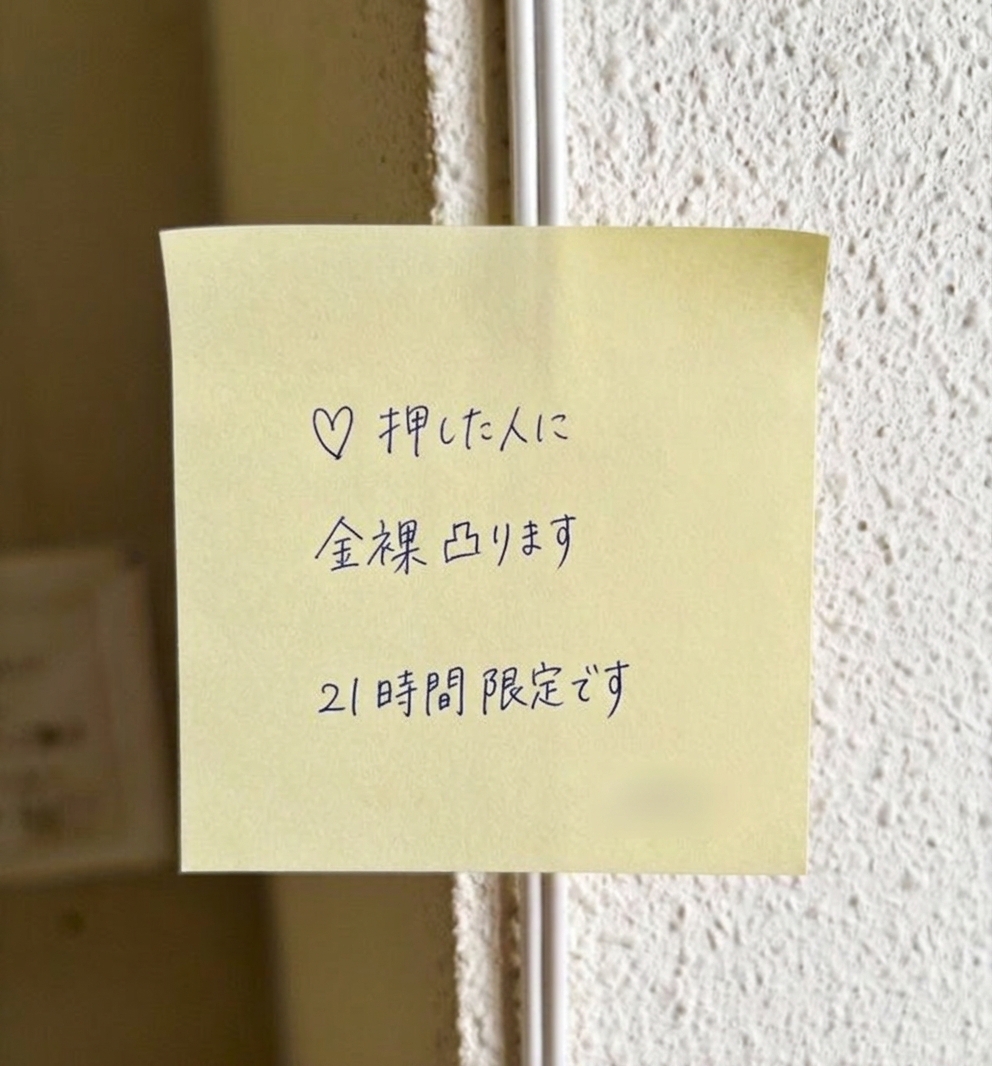 ♡ 押した人に
金裸 凸ります
21時間 限定です